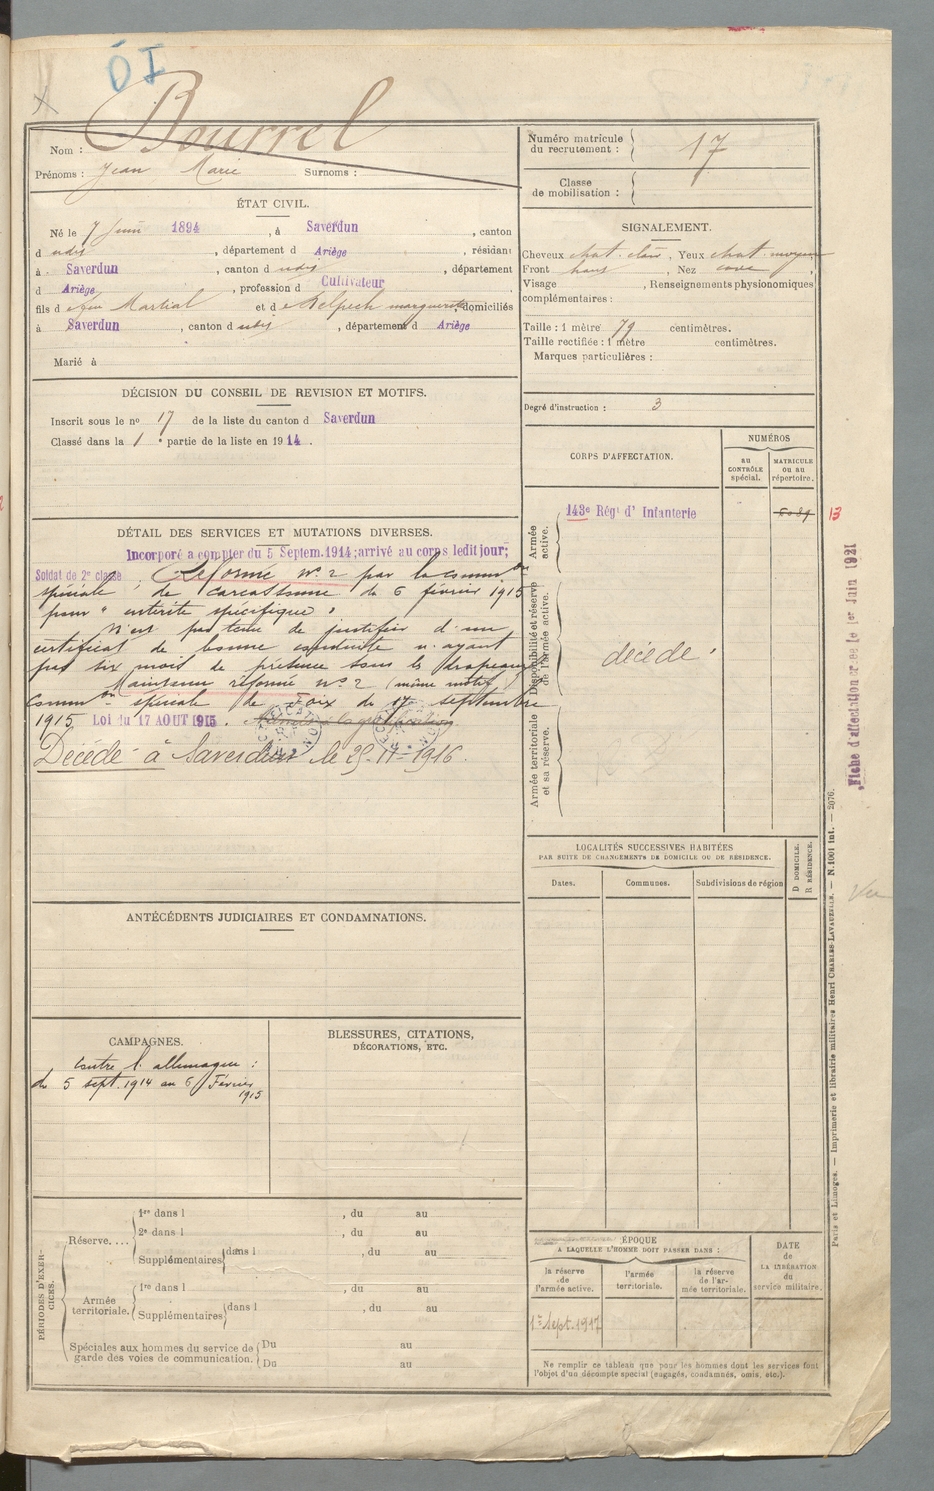 OI
Bourrel
Nom :
Prénoms : Jean Marie Surnoms :
Numéro matricule du recrutement : 17
Classe de mobilisation :
ÉTAT CIVIL.
Né le 7 Juin 1894, à Saverdun, canton
d udis, département d Ariège, résidant
à Saverdun, canton d udis, département
d Ariège, profession d Cultivateur
fils d e feu Martial et d e Delpech marguerite, domiciliés
à Saverdun, canton d udis, département d Ariège
Marié à
SIGNALEMENT.
Cheveux chat. clair, Yeux chat. moyen
Front haut, Nez cave,
Visage , Renseignements physionomiques
complémentaires :
Taille : 1 mètre 79 centimètres.
Taille rectifiée : 1 mètre centimètres.
Marques particulières :
Degré d'instruction : 3
DÉCISION DU CONSEIL DE REVISION ET MOTIFS.
Inscrit sous le no 17 de la liste du canton d Saverdun
Classé dans la 1e partie de la liste en 1914.
DÉTAIL DES SERVICES ET MUTATIONS DIVERSES.
Incorporé a compter du 5 Septem.1914; arrivé au corps ledit jour;
Soldat de 2e classe, Réformé n° 2 par la common
spéciale de Carcassonne du 6 février 1915
pour "entérite spécifique"
N'est pas tenu de justifier d'un
certificat de bonne conduite n'ayant
pas six mois de présence sous les drapeaux
Maintenu réformé n° 2 (même motif)
Common spéciale de Foix du 17 septembre
1915 Loi du 17 AOUT 1915.
Décédé à Saverdun le 25-11-1916.
CORPS D'AFFECTATION.
NUMÉROS
au CONTRÔLE spécial.
MATRICULE ou au répertoire.
Armée active.
143e Régt d' Infanterie
13
Disponibilité et réserve de l'armée active.
décédé
Armée territoriale et sa réserve.
Fiche d'affectation créée le 1er Juin 1921
LOCALITÉS SUCCESSIVES HABITÉES
PAR SUITE DE CHANGEMENTS DE DOMICILE OU DE RÉSIDENCE.
Dates.
Communes.
Subdivisions de région
D DOMICILE.
R RÉSIDENCE.
Vu
ANTÉCÉDENTS JUDICIAIRES ET CONDAMNATIONS.
CAMPAGNES.
Contre l'allemagne :
du 5 sept. 1914 au 6 Février
1915
BLESSURES, CITATIONS,
DÉCORATIONS, ETC.
PÉRIODES D'EXERCICES.
Réserve....
1re dans l , du au
2e dans l , du au
Supplémentaires dans l , du au
Armée territoriale.
1re dans l , du au
Supplémentaires dans l , du au
Spéciales aux hommes du service de garde des voies de communication.
Du au
Du au
ÉPOQUE
A LAQUELLE L'HOMME DOIT PASSER DANS :
la réserve de l'armée active.
l'armée territoriale.
la réserve de l'armée territoriale.
DATE de LA LIBÉRATION du service militaire.
1er Sept. 1917
Ne remplir ce tableau que pour les hommes dont les services font
l'objet d'un décompte spécial (engagés, condamnés, omis, etc.).
Paris et Limoges. — Imprimerie et librairie militaires Henri CHARLES-LAVAUZELLE. — N. 1001 int. — 2076.